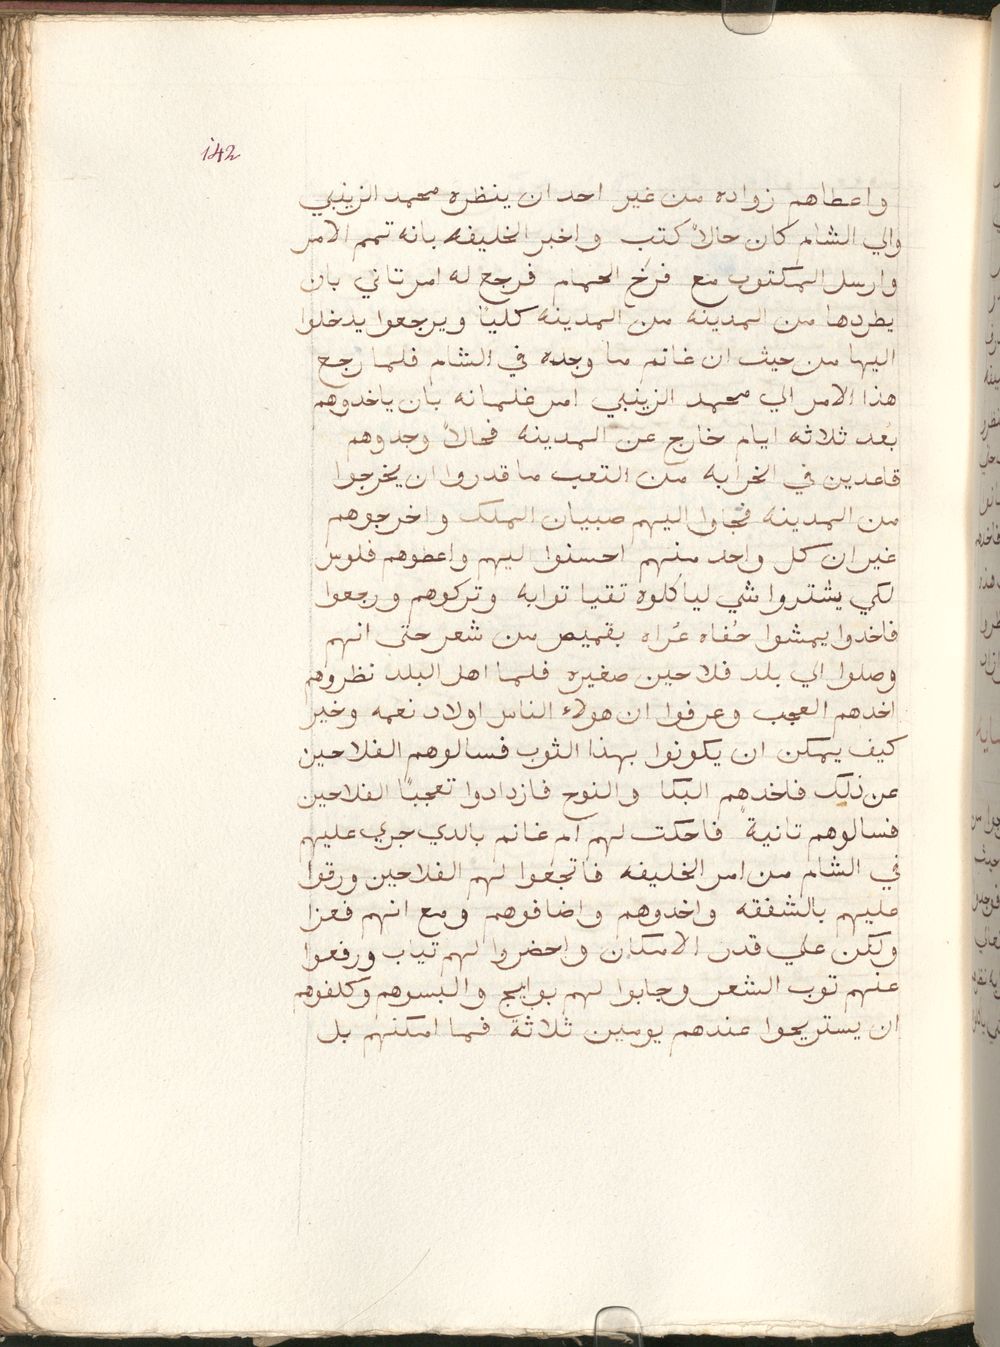 142
واعطاهم زواده من غير احد ان ينظره محمد الزينبي
والي الشام كان حالاً كتب واخبر الخليفه بانه تمم الامر
وارسل المكتوب مع فرخ الحمام فرجع له امر تاني بان
يطردها من المدينه من المدينه كلياً ويرجعوا يدخلوا
اليها من حيث ان غانم ما وجده في الشام فلما رجع
هذا الامر الي محمد الزينبي امر غلمانه بان ياخدوهم
بُعد ثلاثه ايام خارج عن المدينه فحالاً وجدوهم
قاعدين في الخرابه من التعب ما قدروا ان يخرجوا
من المدينه فجاوا اليهم صبيان الملك واخرجوهم
غير ان كل واحد منهم احسنوا ليهم واعطوهم فلوس
لكي يشتروا شي لياكلوه تقيا توابه وتركوهم ورجعوا
فاخدوا يمشوا حُفاه عُراه بقميص من شعر حتى انهم
وصلوا الي بلد فلاحين صغيره فلما اهل البلد نظروهم
اخدهم العجب وعرفوا ان هولاء الناس اولاد نعمه وخير
كيف يمكن ان يكونوا بهذا الثوب فسالوهم الفلاحين
عن ذلك فاخدهم البكا والنوح فازدادوا تعجباً الفلاحين
فسالوهم تانيةً فاحكت لهم ام غانم بالدي جري عليهم
في الشام من امر الخليفه فاتجعوا لهم الفلاحين ورقوا
عليهم بالشفقه واخدوهم واضافوهم ومع انهم فعرا
ولكن علي قدر الامكان واحضروا لهم تياب ورفعوا
عنهم توب الشعر وجابوا لهم بوابيج والبسوهم وكلفوهم
ان يستريحوا عندهم يومين ثلاثة فما امكنهم بل